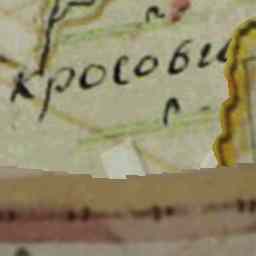 кросови